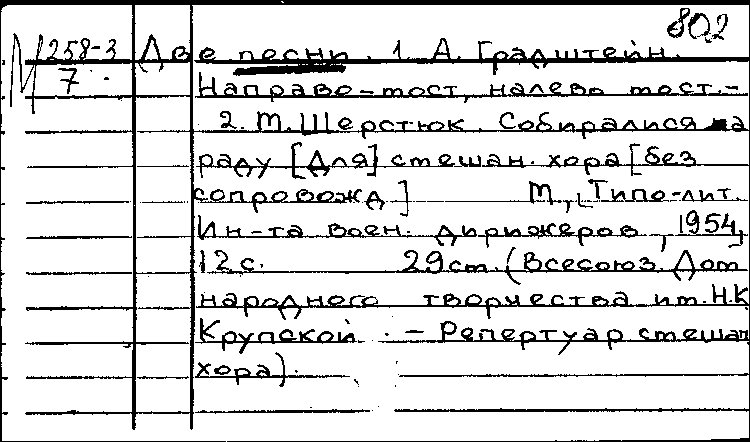 802
М 258-3 Две песни. 1. А. Градштейн.
7
Направо-мост, налево мост.-
2. М. Шерстюк. Собиралися на
раду [Для] смешан. хора [без
сопровожд] М., Типо-лит.
Ин-та воен. дирижеров, 1954,
12 с. 29 см. (Всесоюз. Дом
народного творчества им. Н.К
Крупской. - Репертуар смешан
хора).